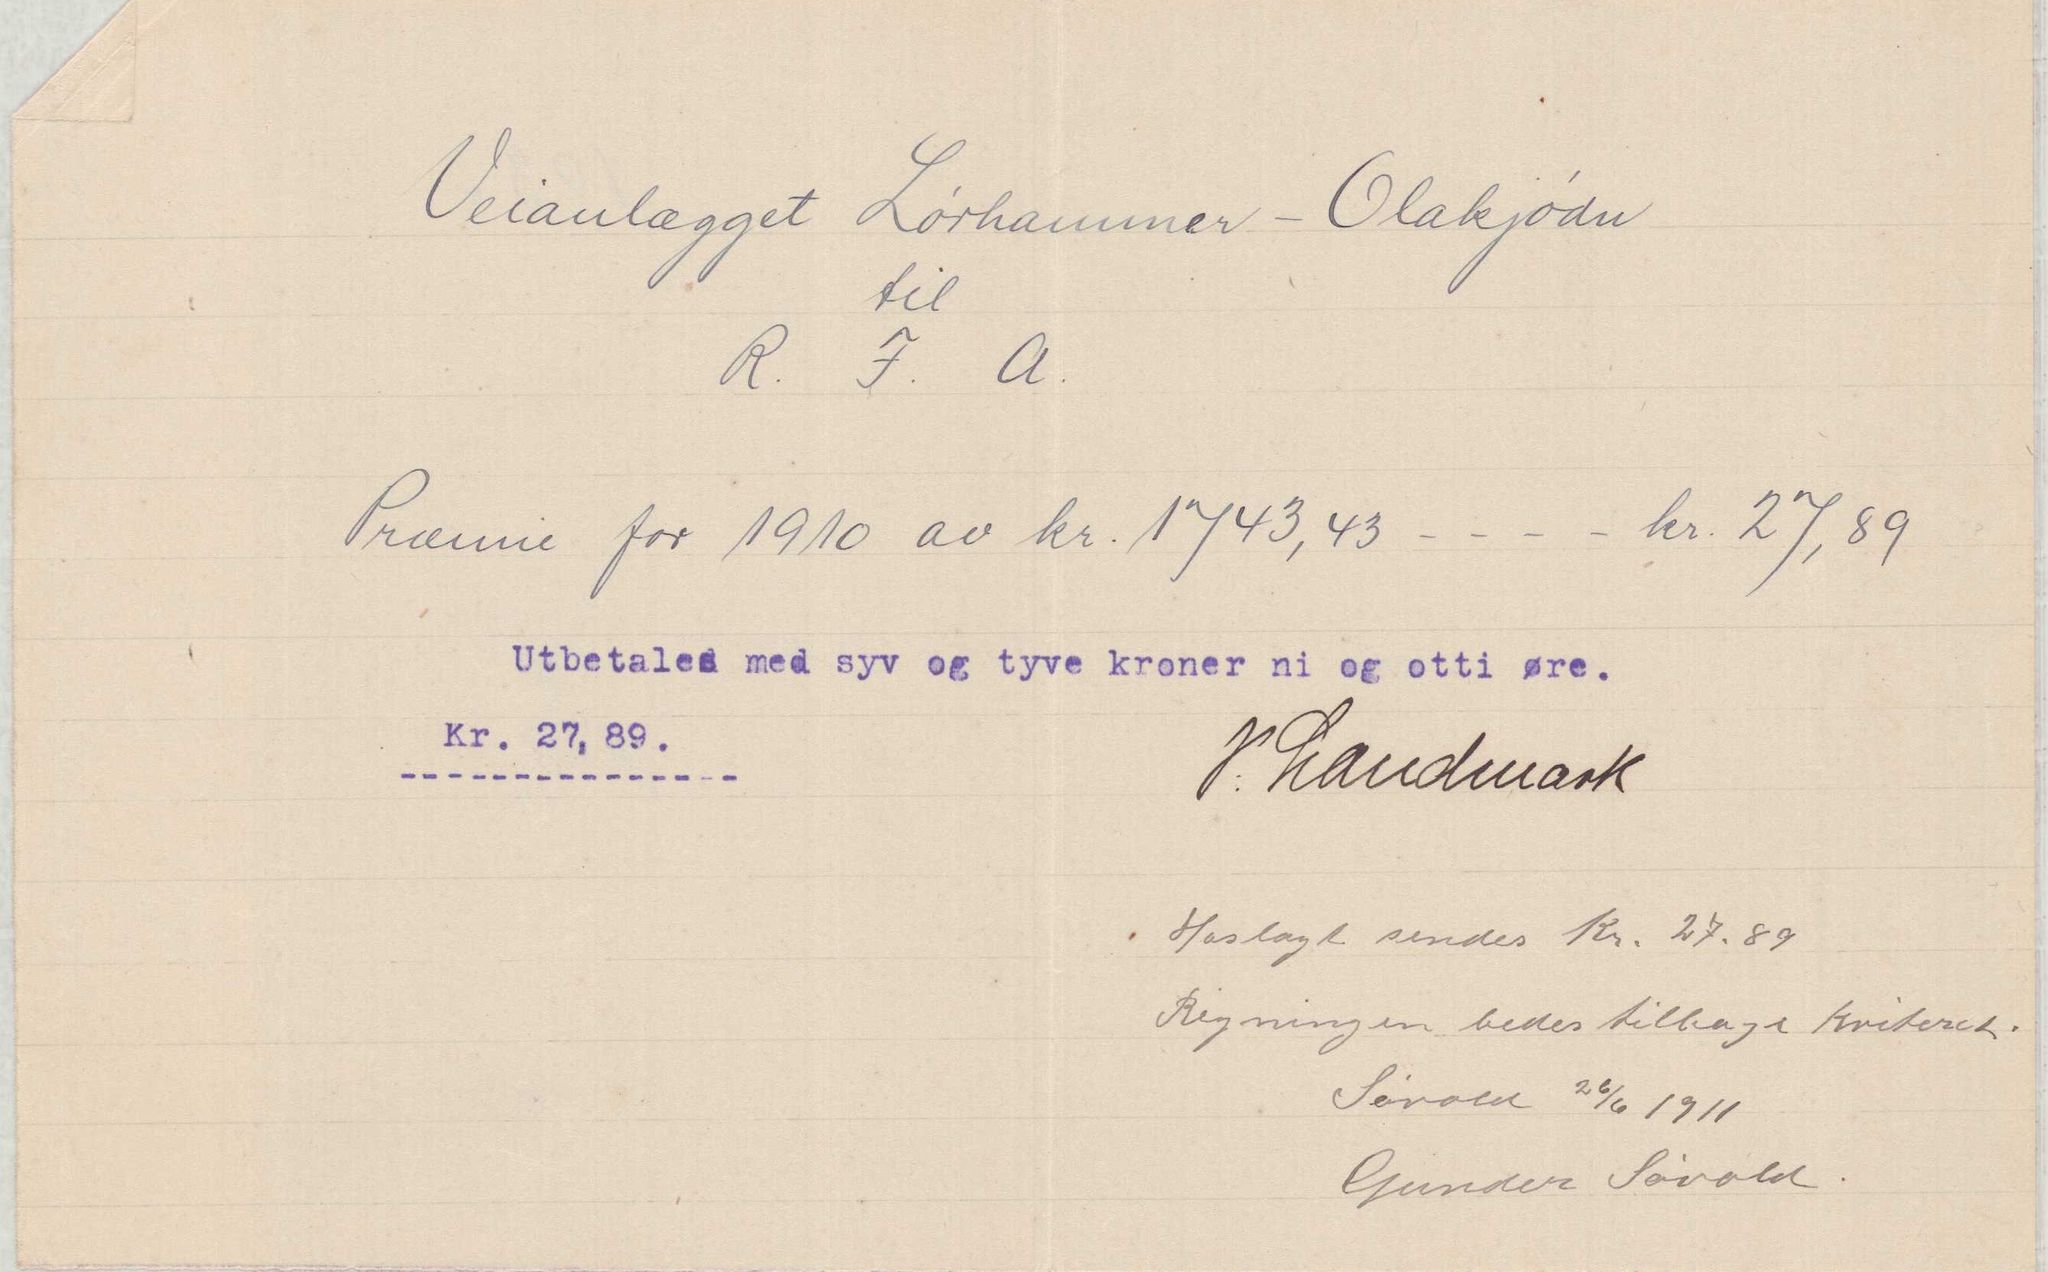 Veianlægget Lórhammer - Olakjódn
til
R. F. A.
Præmie for 1910 av kr. 1743,43 - - - - kr. 27,89
Utbetales med syv og tyve kroner ni og otti øre.
Kr. 27,89.
V. Landmark
Hoslagt sendes Kr. 27.89
Regningen bedes tilbage kviteret.
Sóvold 26/6 1911
Gunder Sóvold.